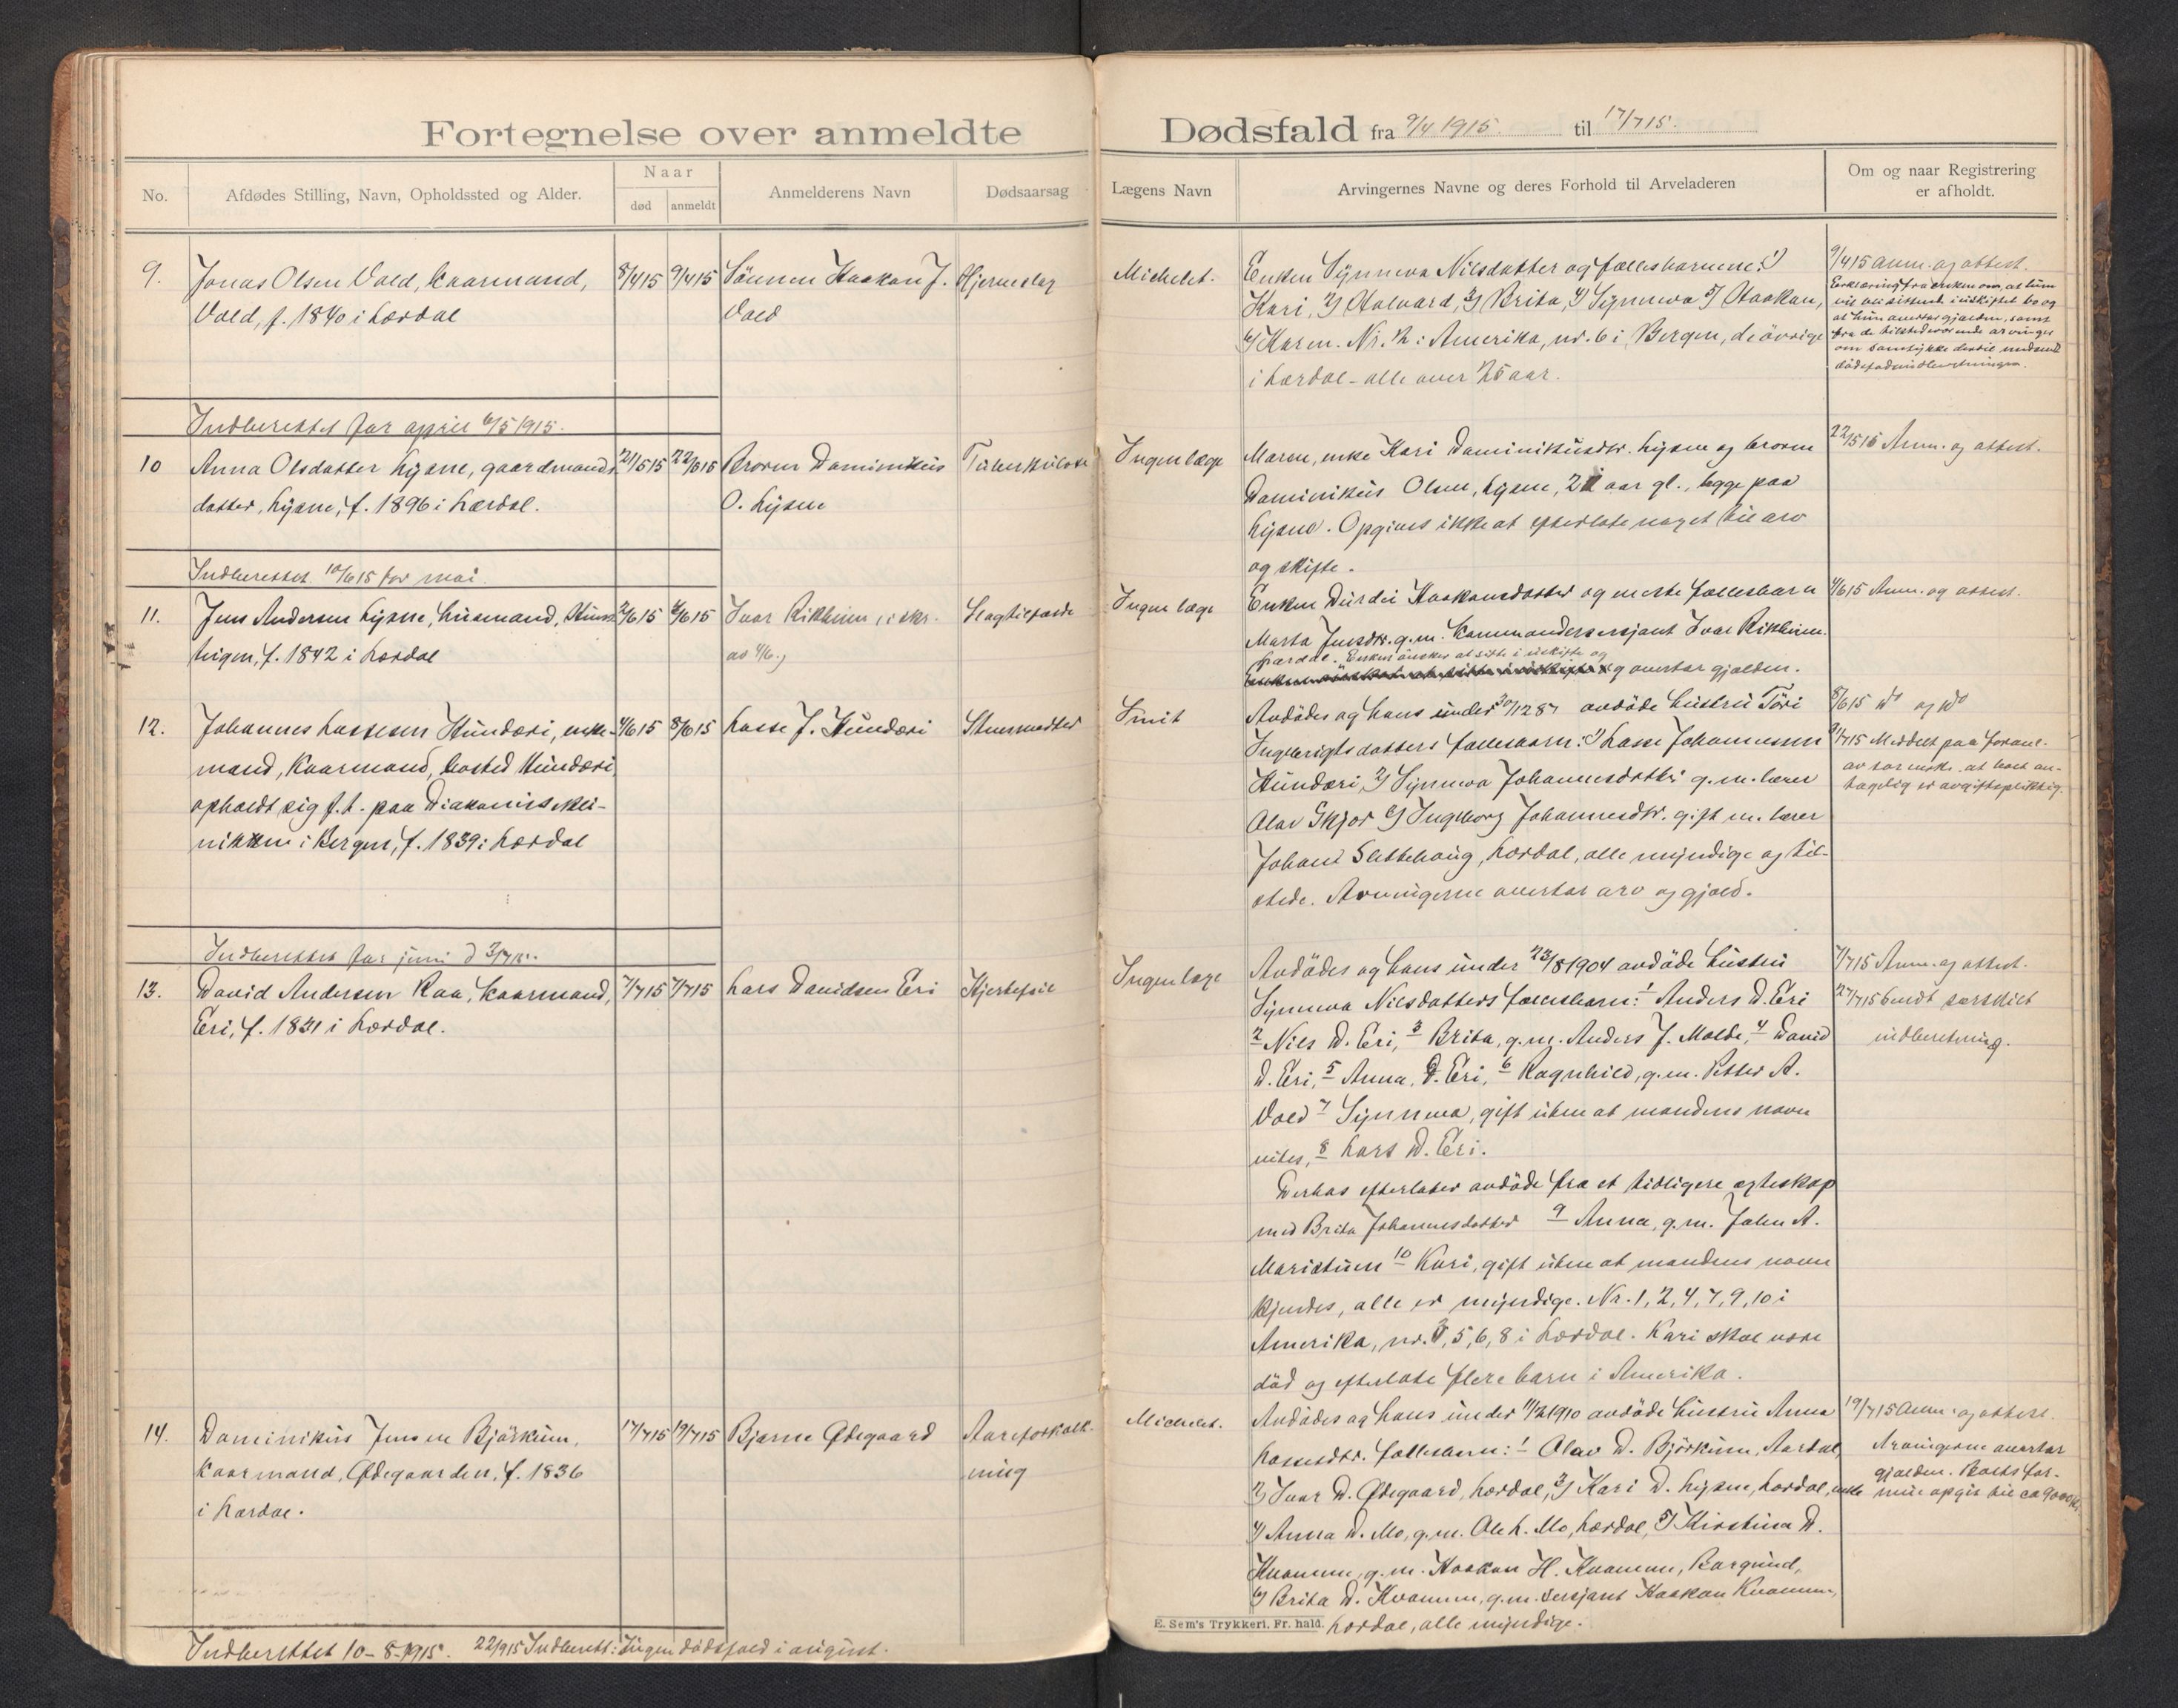 Fortegnelse over anmeldte
Dødsfald fra 9/4 1915. til 17/7 15.
No.
Afdødes Stilling, Navn, Opholdssted og Alder.
Naar
død
anmeldt
Anmelderens Navn
Dødsaarsag
Lægens Navn
Arvingernes Navne og deres Forhold til Arveladeren
Om og naar Registrering
er afholdt.
9.
Jonas Olsen Vold, kaarmand,
Vold, f. 1840 i Lærdal
8/4 15
9/4 15
Sönnen Haakon J.
Vold
Hjerneslag
Michelet.
Enken Synneva Nilsdatter og fællesbarnene: 1)
Kari, 2) Halvard, 3) Brita, 4) Synneva 5) Haakon,
6) Karen. Nr. 2 i Amerika, nr. 6 i Bergen, de övrige
i Lærdal - alle over 25 aar.
9/4 15 anm. og attest.
Erklæring fra enken om, at hun
vil bli sittende i uskiftet bo og
at hun overtar gjælden, samt
fra de tilstedeværende arvinger
om samtykke dertil
dödsfaldsindberetningen.
Indberettet for april 6/5 1915.
10
Anna Olsdatter Lysne, gaardmands
datter, Lysne, f. 1896 i Lærdal.
21/5 15
22/5 15
Broren Dominikus
O. Lysne
Tuberkulose
Ingen læge
Moren, enke Kari Dominikusdtr. Lysne og broren
Dominikus Olsen, Lysne, 21 aar gl., begge paa
Lysne. Opgives ikke at efterlate noget til arv
og skifte.
22/5 15 Anm. og attest.
Indberettet 10/6 15 for mai.
11.
Jens Andersen Lysne, husmand,
f. 1842 i Lærdal
2/6 15
4/6 15
Ivar Rikheim, i skr.
av 4/6.)
Slagtilfælde
Ingen læge
Enken Durdei Haakonsdatter og eneste fællesbarn
Marta Jensdtr. g.m. Kommandersersjant Ivar Rikheim.
Lærdal. Enken önsker at sitte i uskifte og
og overtar gjælden.
4/6 15 Anm. og attest.
12.
Johannes Lassesen Hunderi, enke-
mand, kaarmand, bosted Hunderi
opholdt sig f.t. paa Diakonissekli-
nikken i Bergen, f. 1839 i Lærdal
4/6 15
8/6 15
Lasse J. Hunderi
Smit
Avdödes og hans under 20/12 87 avdöde hustru Töri
Ingebrigtsdatters fællesbarn: 1) Lasse Johannessen
Hunderi, 2) Synneva Johannesdatter g.m. lærer
Olav Skjær 3) Ingeborg Johannesdtr. gift m. lærer
Johan Slettehaug, Lærdal, alle myndige og til-
stede. Arvingerne overtar arv og gjæld.
8/6 15 do og do
9/7 15 Meddelt paa foranl.
at boet an-
tagelig er avgiftspliktig.
Indberettet for juni d 3/7 15.
13.
David Andersen Raa, kaarmand,
Eri, f. 1831 i Lærdal.
7/7 15
7/7 15
Lars Davidsen Eri
Hjertefeil
Ingen læge
Avdödes og hans under 23/8 1904 avdöde hustru
Synneva Nilsdatters fællesbarn: 1 Anders D. Eri
2 Nils D. Eri, 3 Brita, g.m. Anders J. Molde, 4 David
D. Eri, 5 Anna, D. Eri, 6 Ragnhild, g.m. Petter A.
Vold 7 Synneva, gift uten at mandens navn
vites, 8 Lars D. Eri.
Derhos efterlater avdöde fra et tidligere egteskap
med Brita Johannesdatter 9 Anna, g.m. John A.
Maristuen 10 Kari, gift uten at mandens navn
kjendes, alle er myndige. Nr. 1, 2, 4, 7, 9, 10 i
Amerika, nr. 3, 5, 6, 8 i Lærdal. Kari skal være
död og efterlate flere barn i Amerika.
7/7 15 Anm. og attest.
27/7 15 Sendt særskilt
indberetning.
14.
Dominikus Jensen Bjørkum,
kaarmand, Ødegaarden, f. 1836
i Lærdal.
17/7 15
19/7 15
Bjarne Ødegaard
Aareforkalk-
ning
Michelet.
Avdödes og hans under 11/2 1910 avdöde hustru Anna
Lassesdtr. fællesbarn: 1 Olav D. Bjørkum, Aardal,
2) Ivar D. Ødegaard, Lærdal, 3) Kari D. Lysne, Lærdal, enke
4) Anna D. Mo, g.m. Ole L. Mo, Lærdal, 5) Kirstina D.
Kvamme, g.m. Haakon H. Kvamme, Borgund,
6) Brita D. Kvamme, g.m. sersjant Haakon Kvamme,
Lærdal, alle myndige.
19/7 15 Anm. og attest.
Arvingerne overtar
gjælden. Boets for-
mue opgis til ca 9000 kr.
E. Sem's Trykkeri, Fr. hald.
Indberettet 10-8-1915. 22/9 15 Indberett: Ingen dödsfald i august.